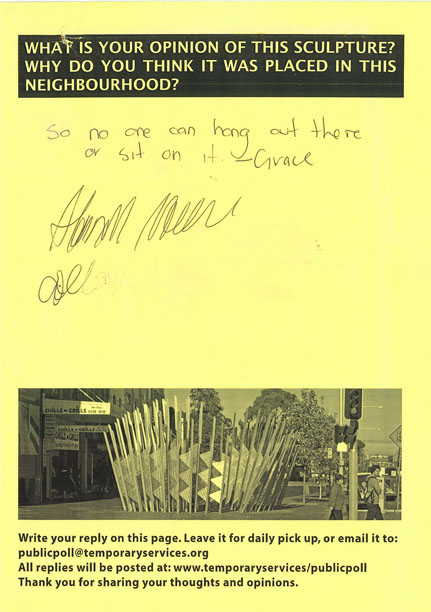 WHAT IS YOUR OPINION OF THIS SCULPTURE?
WHY DO YOU THINK IT WAS PLACED IN THIS
NEIGHBOURHOOD?
So no one can hang out there
or sit on it. -Grace
CHILLS N GRILLS
CHILLS N GRILLS
Write your reply on this page. Leave it for daily pick up, or email it to:
publicpoll@temporaryservices.org
All replies will be posted at: www.temporaryservices/publicpoll
Thank you for sharing your thoughts and opinions.